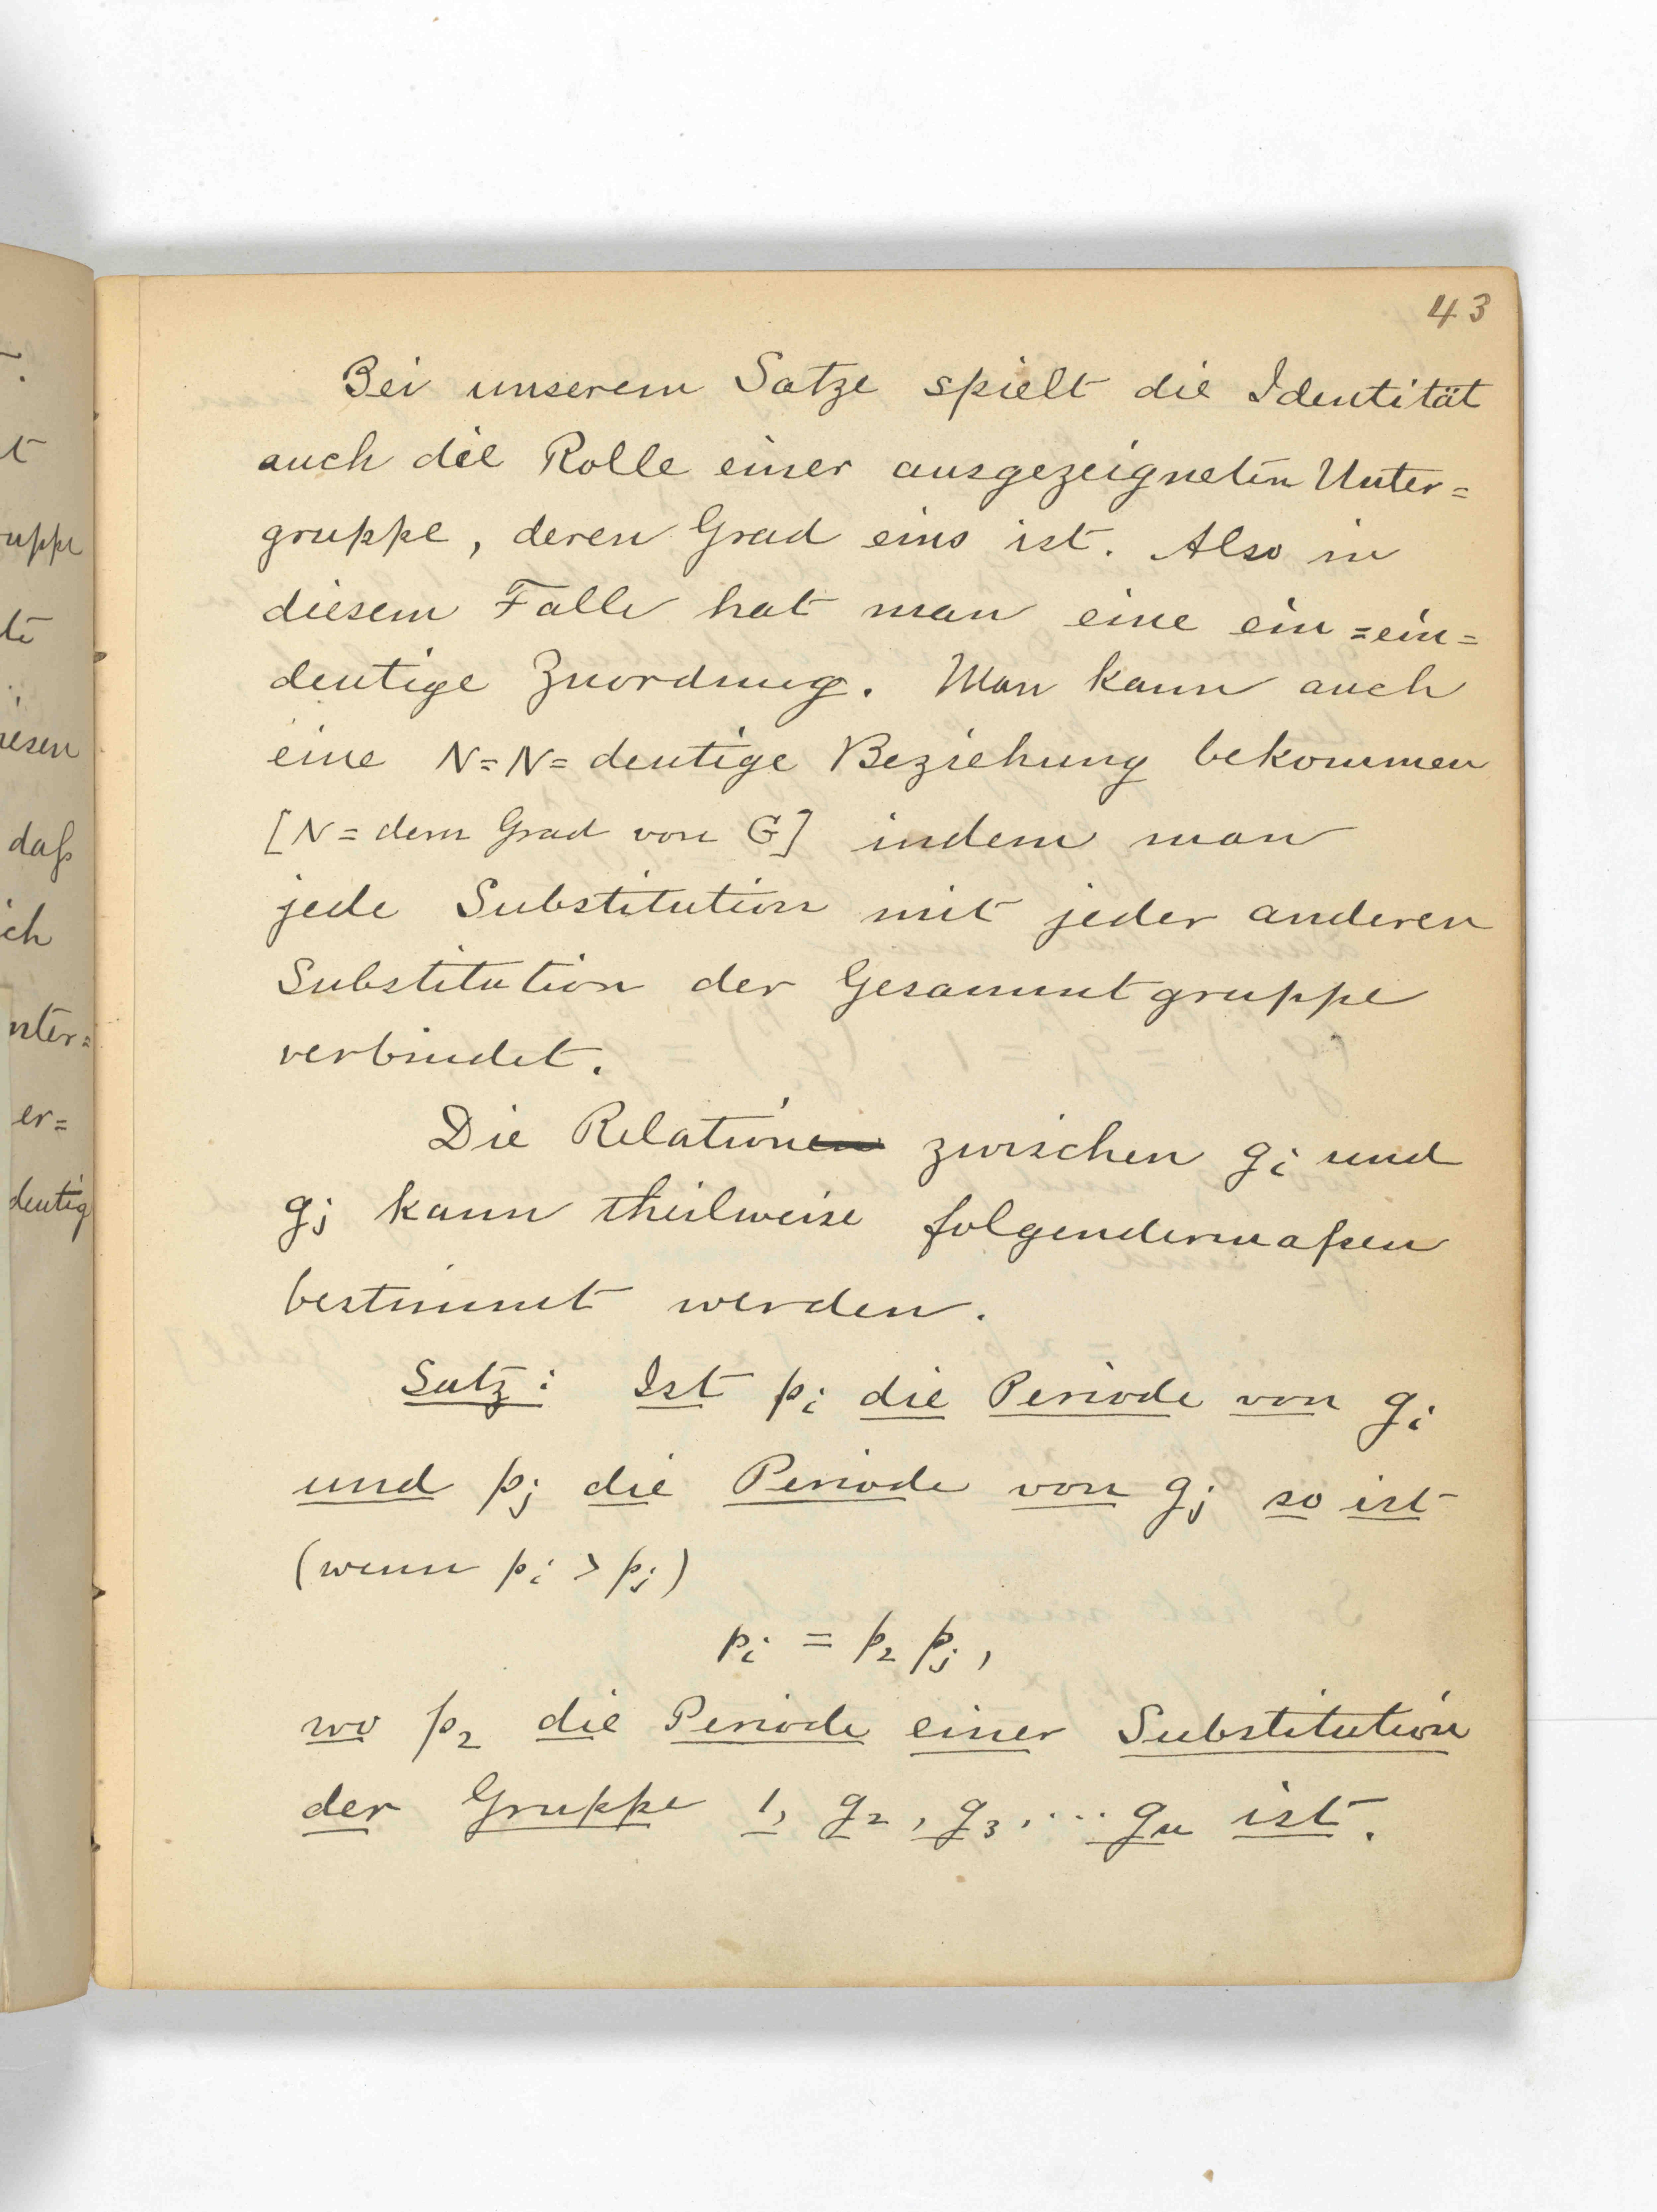 43
Bei unserem Satze spielt die Identität
auch die Rolle einer ausgezeigneten Unter=
gruppe, deren Grad eins ist. Also in
diesem Falle hat man eine ein=ein=
deutige Zuordnung. Man kann auch
eine N=N=deutige Beziehung bekommen
[N = dem Grad von G] indem man
jede Substitution mit jeder anderen
Substitution der Gesammtgruppe
verbindet.
Die Relationen zwischen gi und
gj kann theilweise folgendermaßen
bestimmt werden.
Satz: Ist pi die Periode von gi
und pj die Periode von gj so ist
(wenn pi > pj)
pi = p2 pj,
wo p2 die Periode einer Substitution
der Gruppe 1, g2, g3, ... gn ist.
t
uppe
te
iesen
daß
ich
nter=
er=
deutig